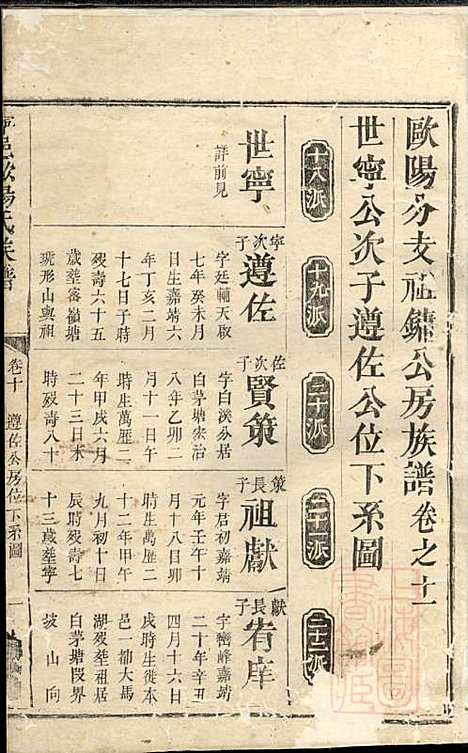 歐陽分支祖鏽公房族譜卷之十一
世寧公次子遵佐公位下系圖
十八派
十九派
二十派
二十一派
二十二派
世寧
詳前見
寧次子
遵佐
字廷輔天啟
七年癸未月
日生嘉靖六
年丁亥二月
十七日子時
歿壽六十五
歲塟畬嶺塘
琬形山與祖
佐次子
賢策
字白溪分居
白茅塘宏治
八年乙卯二
月十一日午
時生萬歷二
年甲戌六月
二十三日未
時歿壽八十
策長子
祖獻
字君初嘉靖
元年壬午十
月十八日卯
時生萬歷二
十二年甲午
九月初十日
辰時歿壽七
十三歲塟寧
獻長子
宥庠
字巒峰嘉靖
二十年辛丑
四月十六日
戌時生徙本
邑一都大馬
湖歿塟祖居
白茅塘叚界
坡山向
邑歐陽氏族譜
卷十
遵佐公房位下系圖
一